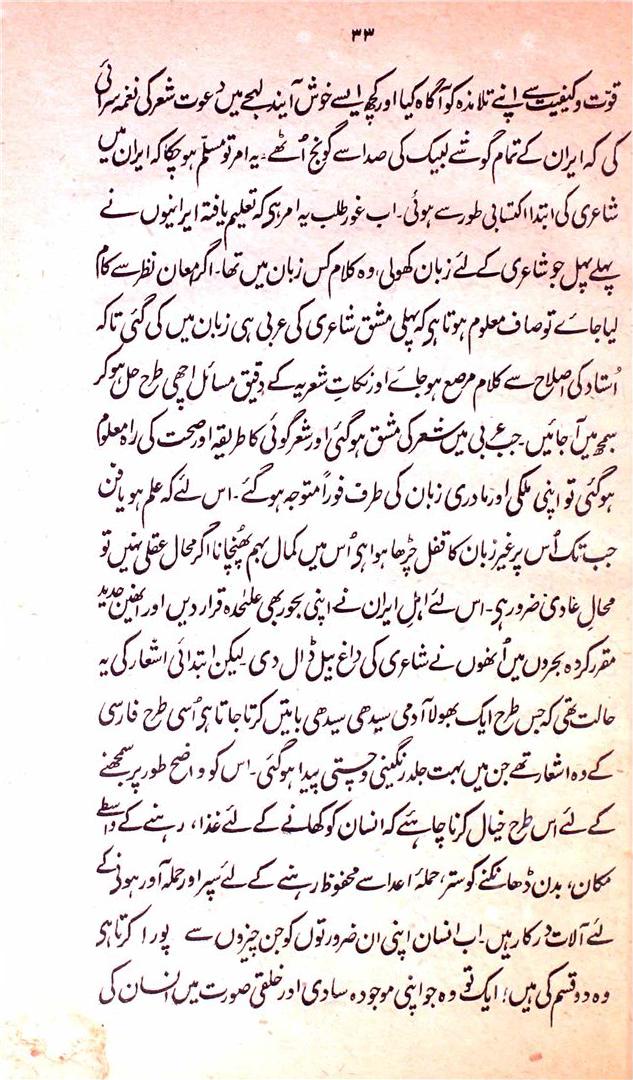 ۳۳
قوّت و کیفیت سے اپنے تلامذہ کو آگاہ کیا اور کچھ ایسے خوش آیند لہجے میں دعوت شعر کی نغمہ سرائی
کی کہ ایران کے تمام گوشے لبیک کی صدا سے گونج اُٹھے۔ یہ امر تو مسلّم ہو چکا کہ ایران میں
شاعری کی ابتدا اکتسابی طور سے ہوئی۔ اب غور طلب یہ امر ہی کہ تعلیم یافتہ ایرانیوں نے
پہلے پہل جو شاعری کے لئے زبان کھولی، وہ کلام کس زبان میں تھا۔ اگر امعان نظر سے کام
لیا جاے تو صاف معلوم ہوتا ہی کہ پہلی مشق شاعری کی عربی ہی زبان میں کی گئی تاکہ
اُستاد کی اصلاح سے کلام مرصع ہو جاے اور نکاتِ شعریہ کے دقیق مسائل اچھی طرح حل ہو کر
سمجھ میں آ جائیں۔ جب عربی میں شعر کی مشق ہو گئی اور شعر گوئی کا طریقہ اور صحت کی راہ معلوم
ہو گئی تو اپنی ملکی اور مادری زبان کی طرف فوراً متوجہ ہو گئے۔ اس لئے کہ علم ہو یا فن
جب تک اُس پر غیر زبان کا قفل چڑھا ہوا ہی اُس میں کمال بہم پہُنچانا اگر محال عقلی نہیں تو
محالِ عادی ضرور ہی۔ اس لئے اہلِ ایران نے اپنی بحور بھی علٰحدہ قرار دیں اور انھیں جدید
مقرر کردہ بحروں میں اُنھوں نے شاعری کی داغ بیل ڈال دی۔ لیکن ابتدائی اشعار کی یہ
حالت تھی کہ جس طرح ایک بھولا آدمی سیدھی سیدھی باتیں کرتا جاتا ہی اُسی طرح فارسی
کے وہ اشعار تھے جن میں بہت جلد رنگینی و چستی پیدا ہو گئی۔ اس کو واضح طور پر سمجھنے
کے لئے اس طرح خیال کرنا چاہئیے کہ انسان کو کھانے کے لئے غذا، رہنے کے واسطے
مکان، بدن ڈھانکنے کو ستر، حملۂ اعدا سے محفوظ رہنے کے لئے سپر اور حملہ آور ہونی کے
لئے آلات درکار ہیں۔ اب انسان اپنی ان ضرورتوں کو جن چیزوں سے پورا کرتا ہی
وہ دو قسم کی ہیں؛ ایک تو وہ جو اپنی موجودہ سادی اور خلقی صورت میں انسان کی